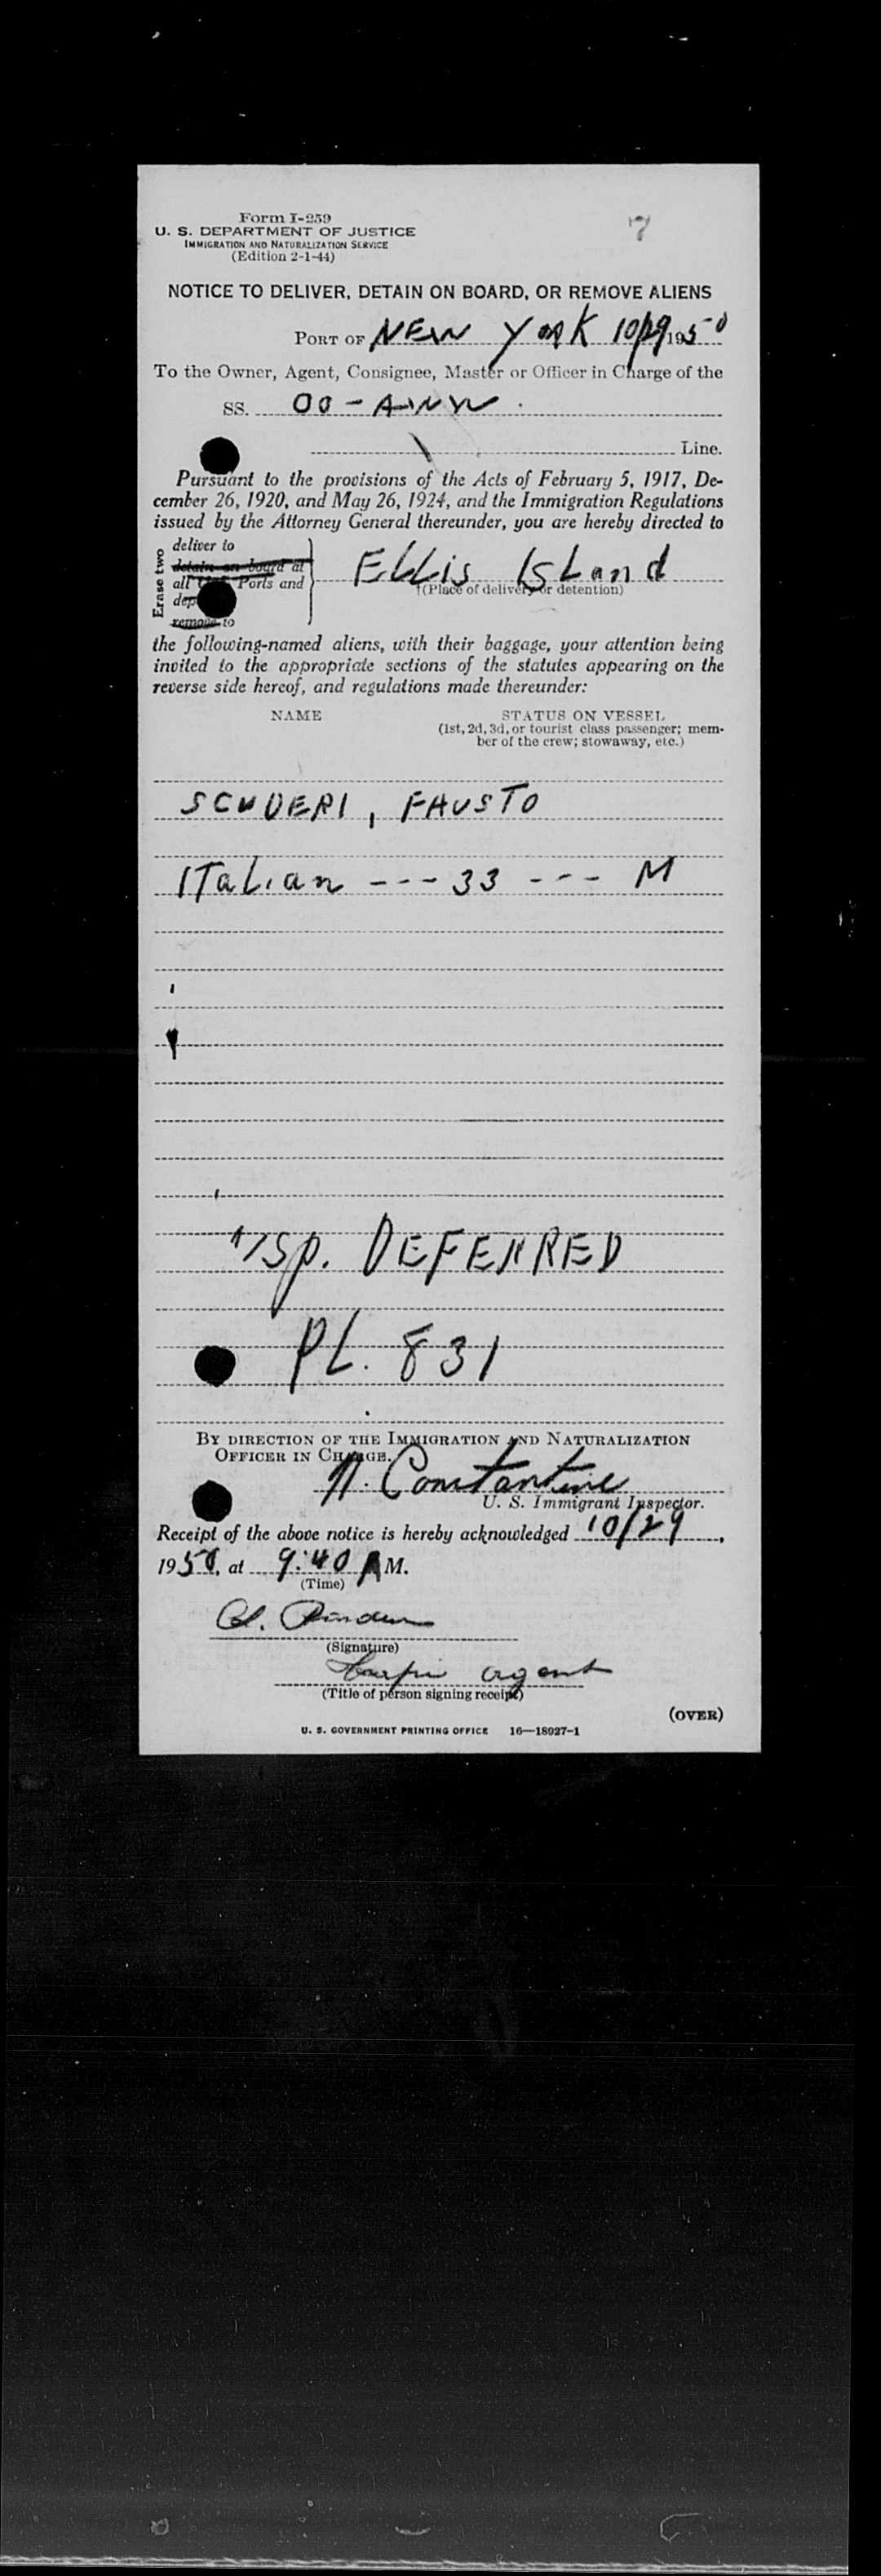 Form I-259
7
U. S. DEPARTMENT OF JUSTICE
IMMIGRATION AND NATURALIZATION SERVICE
(Edition 2-1-44)
NOTICE TO DELIVER, DETAIN ON BOARD, OR REMOVE ALIENS
PORT OF NEW YORK 10/29 1950
To the Owner, Agent, Consignee, Master or Officer in Charge of the
SS. OO-AWW
Line.
Pursuant to the provisions of the Acts of February 5, 1917, De-
cember 26, 1920, and May 26, 1924, and the Immigration Regulations
issued by the Attorney General thereunder, you are hereby directed to
Erase two
deliver to
detain on board at
all Ports and
remove to
Ellis Island
(Place of delivery or detention)
the following-named aliens, with their baggage, your attention being
invited to the appropriate sections of the statutes appearing on the
reverse side hereof, and regulations made thereunder:
NAME STATUS ON VESSEL
(1st, 2d, 3d, or tourist class passenger; mem-
ber of the crew; stowaway, etc.)
SCUDERI, FAUSTO
ITALian --- 33 --- M
DEFERRED
PL. 831
BY DIRECTION OF THE IMMIGRATION AND NATURALIZATION
OFFICER IN CHARGE.
N. Constantine
U. S. Immigrant Inspector.
Receipt of the above notice is hereby acknowledged 10/29,
1950, at 9:40 AM.
(Time)
(Signature)
agent
(Title of person signing receipt)
(OVER)
U. S. GOVERNMENT PRINTING OFFICE 16—18027-1